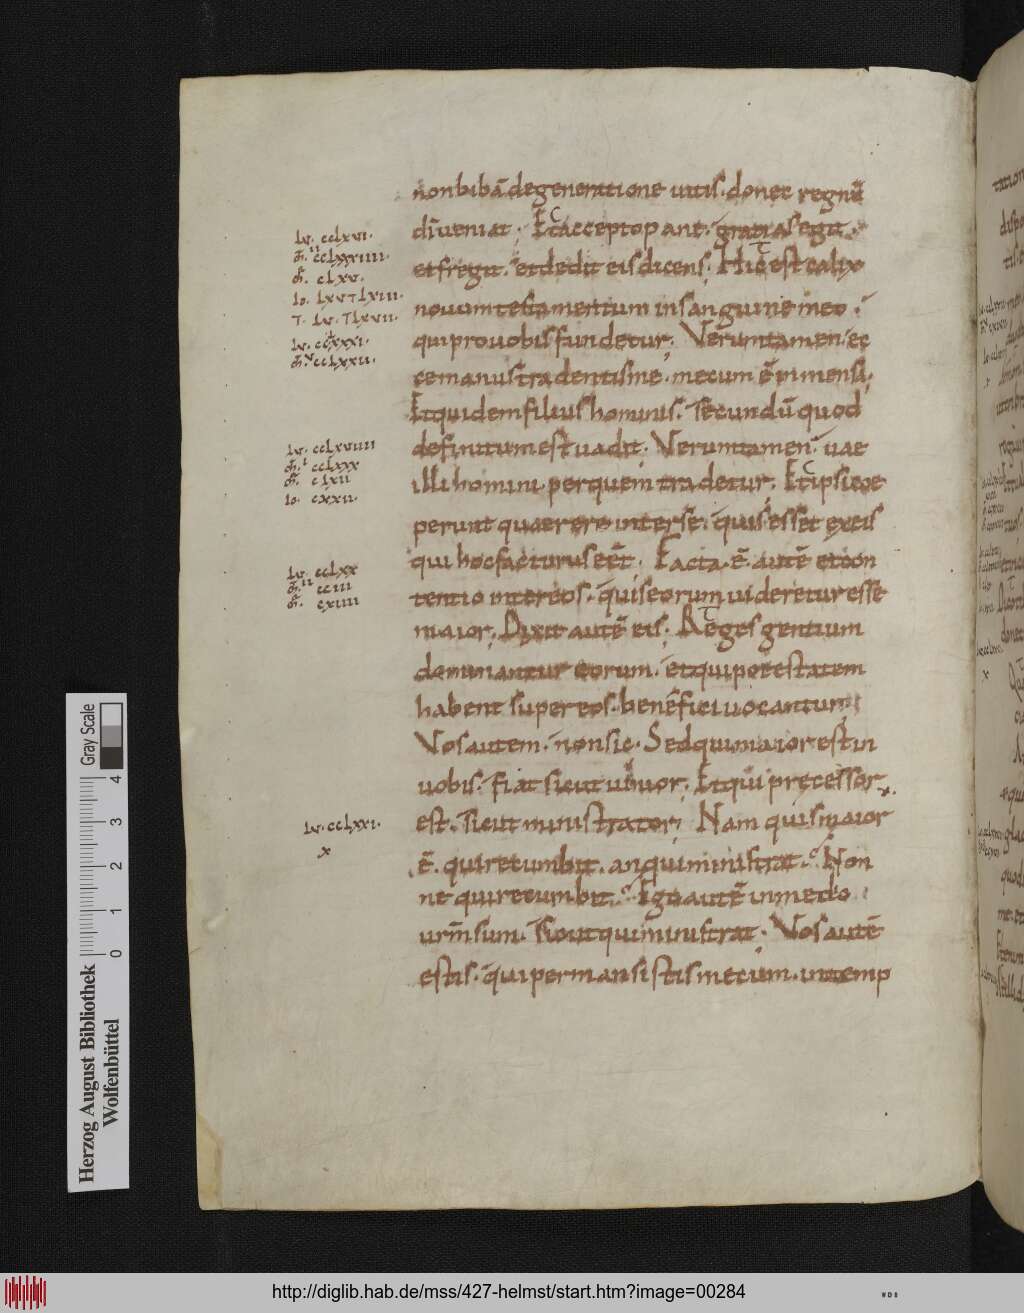 non bibā de generatione uitis · donec regnū
dī ueniat · Et accepto pane · gratias egit ·
et fregit · et dedit eis dicens · Hic est calix
nouum testamentum in sanguine meo ·
qui pro uobis fundetur · Verumtamen · ec
ce manus tradentis me · mecum ē in mensa ·
Et quidem filius hominis · secundū quod
definitum est uadit · Verumtamen · uae
illi homini · per quem tradetur · Et ipsi coe
perunt quaerere inter se · quis esset ex eis
qui hoc facturus eēt · Facta · ē · autē et con
tentio inter eos · quis eorum uideretur esse
maior · Dixit autē eis · Reges gentium
dominantur eorum · et qui potestatem
habent super eos · benefici uocantur
Vos autem · non sic · Sed qui maior est in
uobis · fiat sicut iunior · Et qui precessor
est · sicut ministrator · Nam quis maior
ē · qui recumbit · an qui ministrat · Non
ne qui recumbit · Ego autē in medio
urm̄ sum · Sicut qui ministrat · Vos autē
estis · qui permansistis mecum · in temp
lu · cclxvi ·
cclxxxiiii ·
clxv ·
io · lxv
lu · cclxxi ·
cclxxii ·
lu · cclxviiii
cclxxx
clxii
io · cxxii ·
lu · cclxx
cciii
cxiiii
lu · cclxxi ·
x
Gray Scale
0 1 2 3 4
Herzog August Bibliothek
Wolfenbüttel
http://diglib.hab.de/mss/427-helmst/start.htm?image=00284